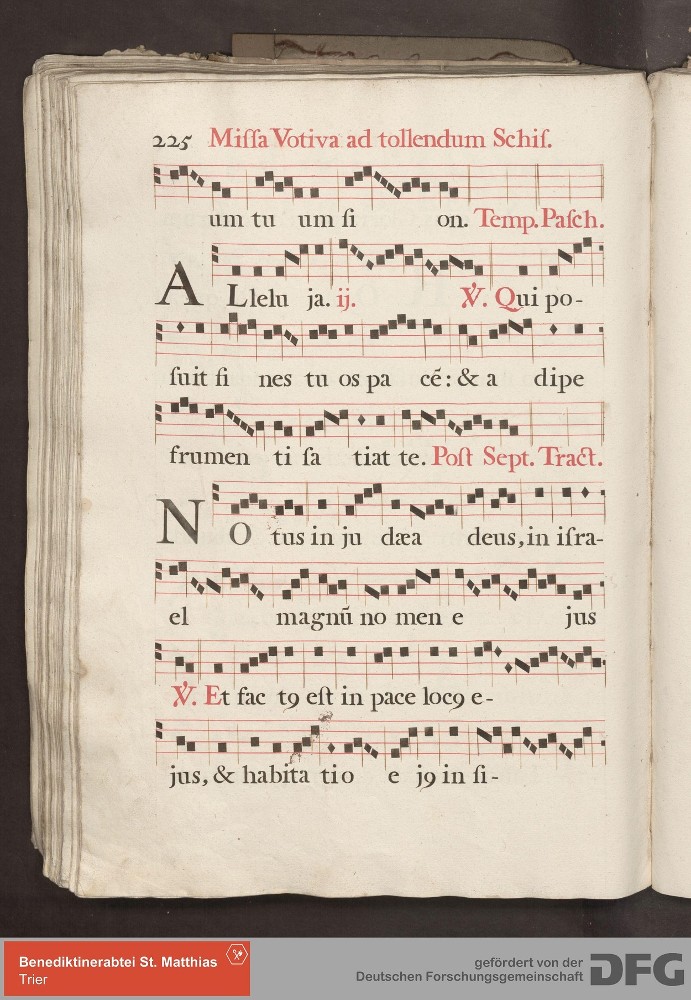 225 Miſſa Votiva ad tollendum Schiſ.
um tu um ſi on. Temp. Paſch.
A Llelu ja. ij. ℣. Qui po-
ſuit ſi nes tu os pa cē: & a dipe
frumen ti ſa tiat te. Poſt Sept. Tract.
N O tus in ju dæa deus, in iſra-
el magnū no men e jus
℣. Et fac tꝯ eſt in pace locꝯ e-
jus, & habita tio e jꝯ in ſi-
Benediktinerabtei St. Matthias
Trier
gefördert von der
Deutschen Forschungsgemeinschaft DFG